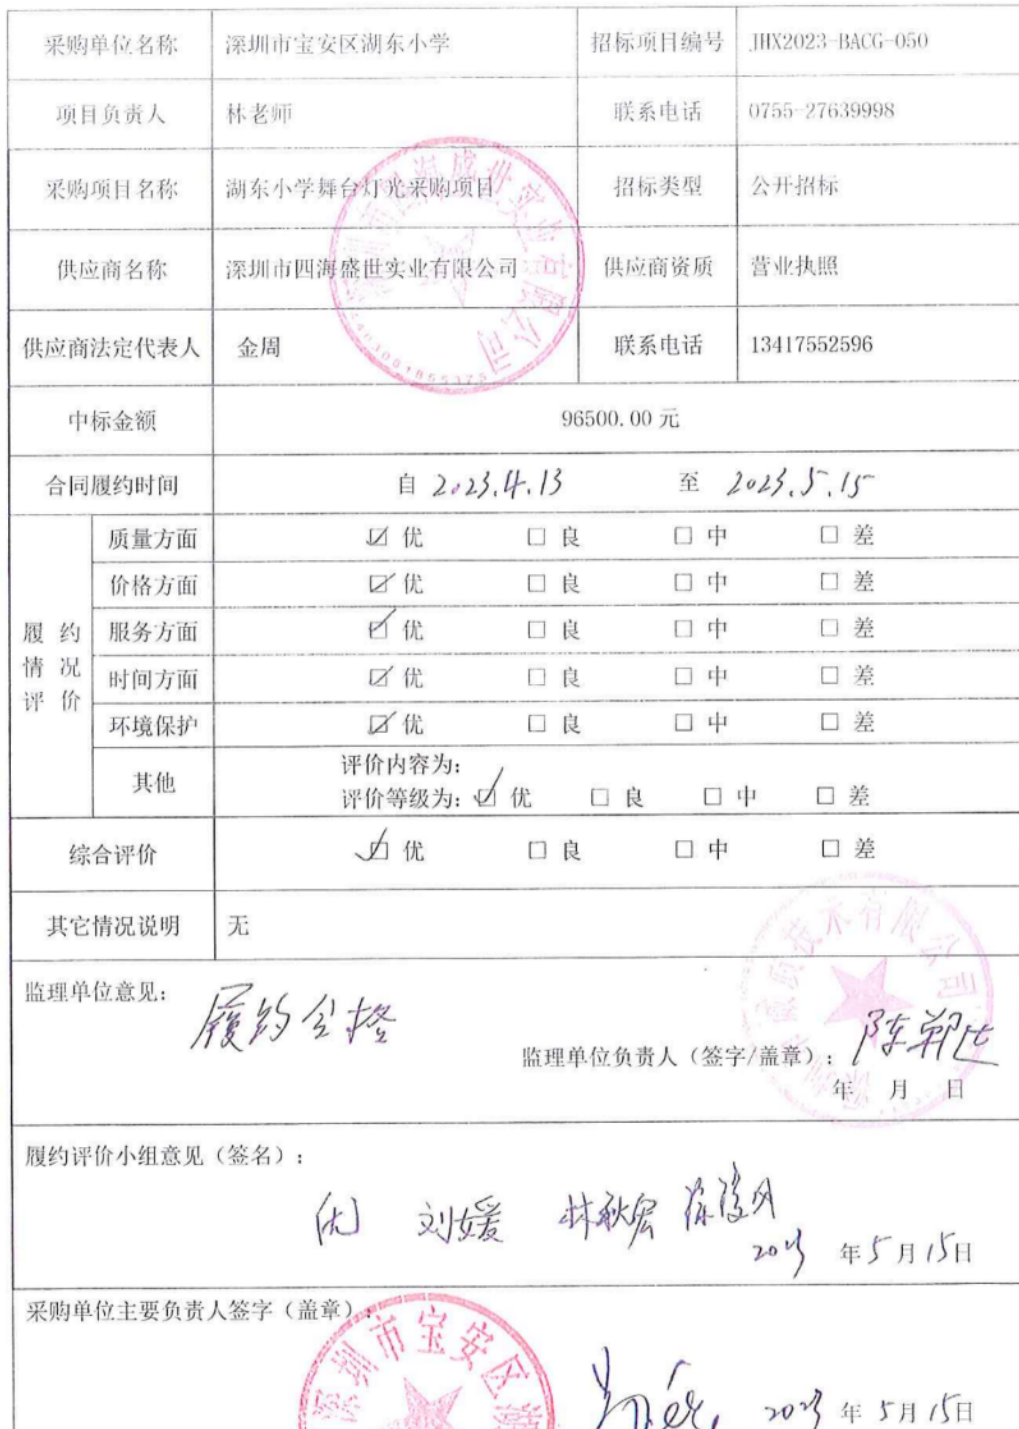 采购单位名称 深圳市宝安区湖东小学 招标项目编号 JHX2023-BACG-050
项目负责人 林老师 联系电话 0755-27639998
采购项目名称 湖东小学舞台灯光采购项目 招标类型 公开招标
供应商名称 深圳市四海盛世实业有限公司 供应商资质 营业执照
供应商法定代表人 金周 联系电话 13417552596
中标金额 96500.00 元
合同履约时间 自 2023.4.13 至 2023.5.15
履约情况评价
质量方面 ☑ 优 □ 良 □ 中 □ 差
价格方面 ☑ 优 □ 良 □ 中 □ 差
服务方面 ☑ 优 □ 良 □ 中 □ 差
时间方面 ☑ 优 □ 良 □ 中 □ 差
环境保护 ☑ 优 □ 良 □ 中 □ 差
其他 评价内容为:
评价等级为: ☑ 优 □ 良 □ 中 □ 差
综合评价 ☑ 优 □ 良 □ 中 □ 差
其它情况说明 无
监理单位意见:
履约合格
监理单位负责人（签字/盖章）:
年 月 日
履约评价小组意见（签名）:
优 刘媛 林秋宏
2023 年 5 月 15 日
采购单位主要负责人签字（盖章）:
深圳市宝安区湖
2023 年 5 月 15 日